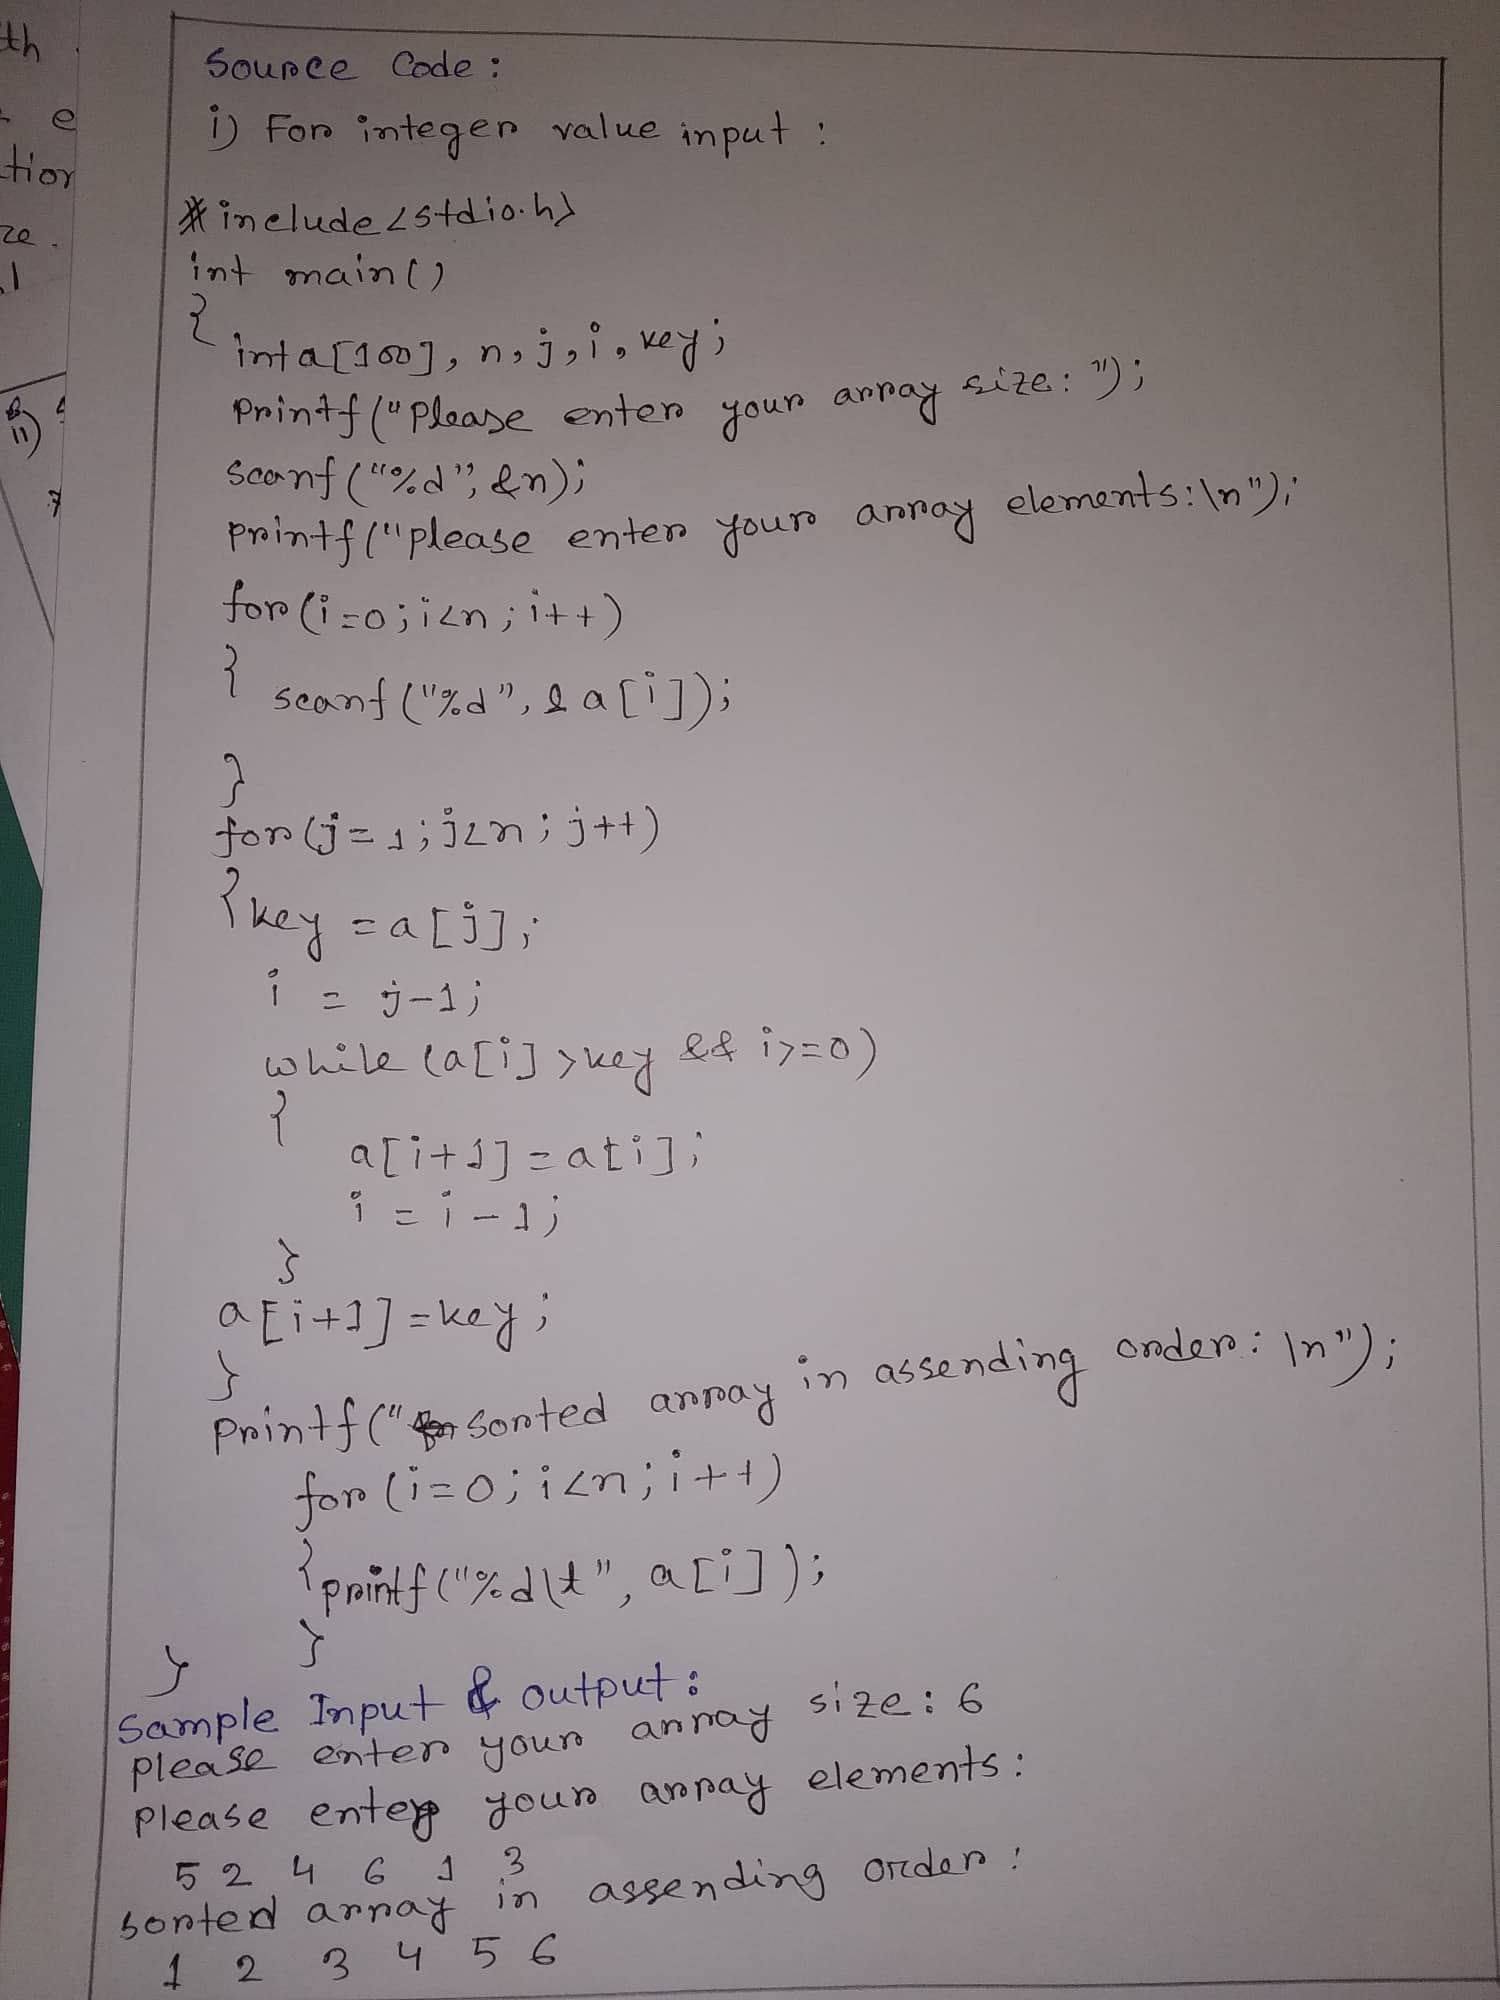 th
e
tion
ze.
1
ii)
Source Code:
i) For integer value input:
#include<stdio.h>
int main()
{
int a[100], n, j, i, key;
Printf("Please enter your array size: ");
Scanf("%d", &n);
Printf("please enter your array elements:\n");
for(i=0;i<n;i++)
{
scanf("%d", &a[i]);
}
for(j=1;j<n;j++)
{key = a[j];
i = j-1;
while (a[i]>key && i>=0)
{
a[i+1]=a[i];
i=i-1;
}
a[i+1]=key;
}
Printf("Sorted array in assending order: \n");
for(i=0;i<n;i++)
{printf("%d\t", a[i]);
}
}
Sample Input & output:
please enter your array size: 6
Please enter your array elements:
5 2 4 6 1 3
Sorted array in assending order:
1 2 3 4 5 6